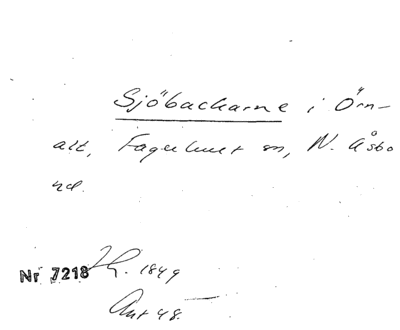 Sjöbackarne i Örn-
alt, Fagerhult sn, N. Åsbo
hd.
Nr 7218 Th. 1849
Ant 48.